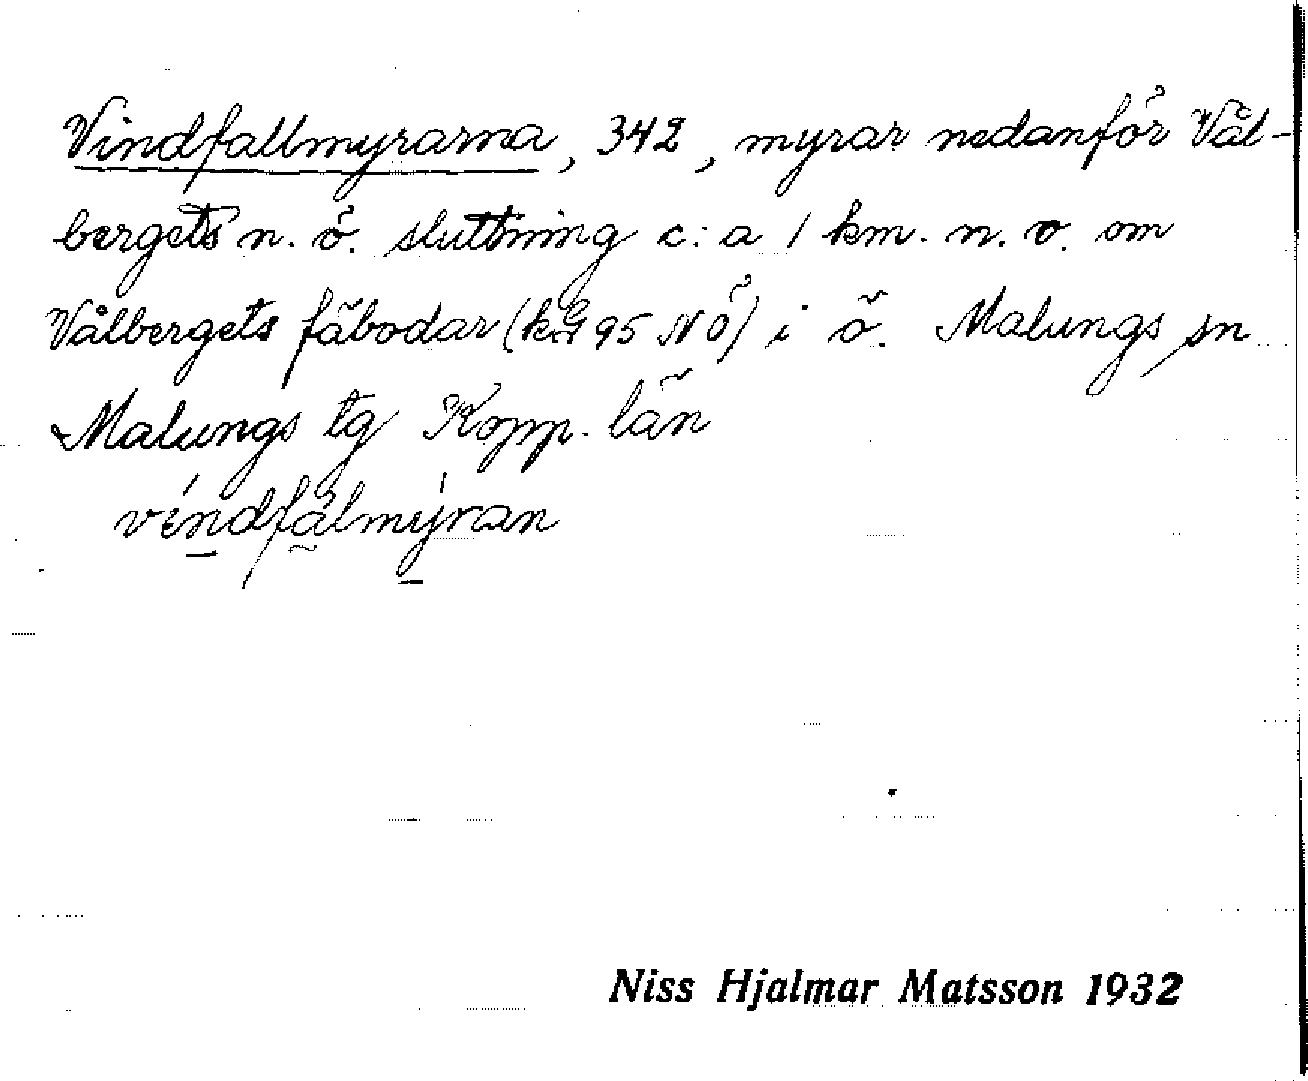 Vindfallmyrarna, 342, myrar nedanför Vål-
bergets n. ö. sluttning c:a 1 km. n. v. om
Vålbergets fäbodar (kG 95 NÖ) i ö. Malungs sn
Malungs tg Kopp. län
víndfålmýran
Niss Hjalmar Matsson 1932